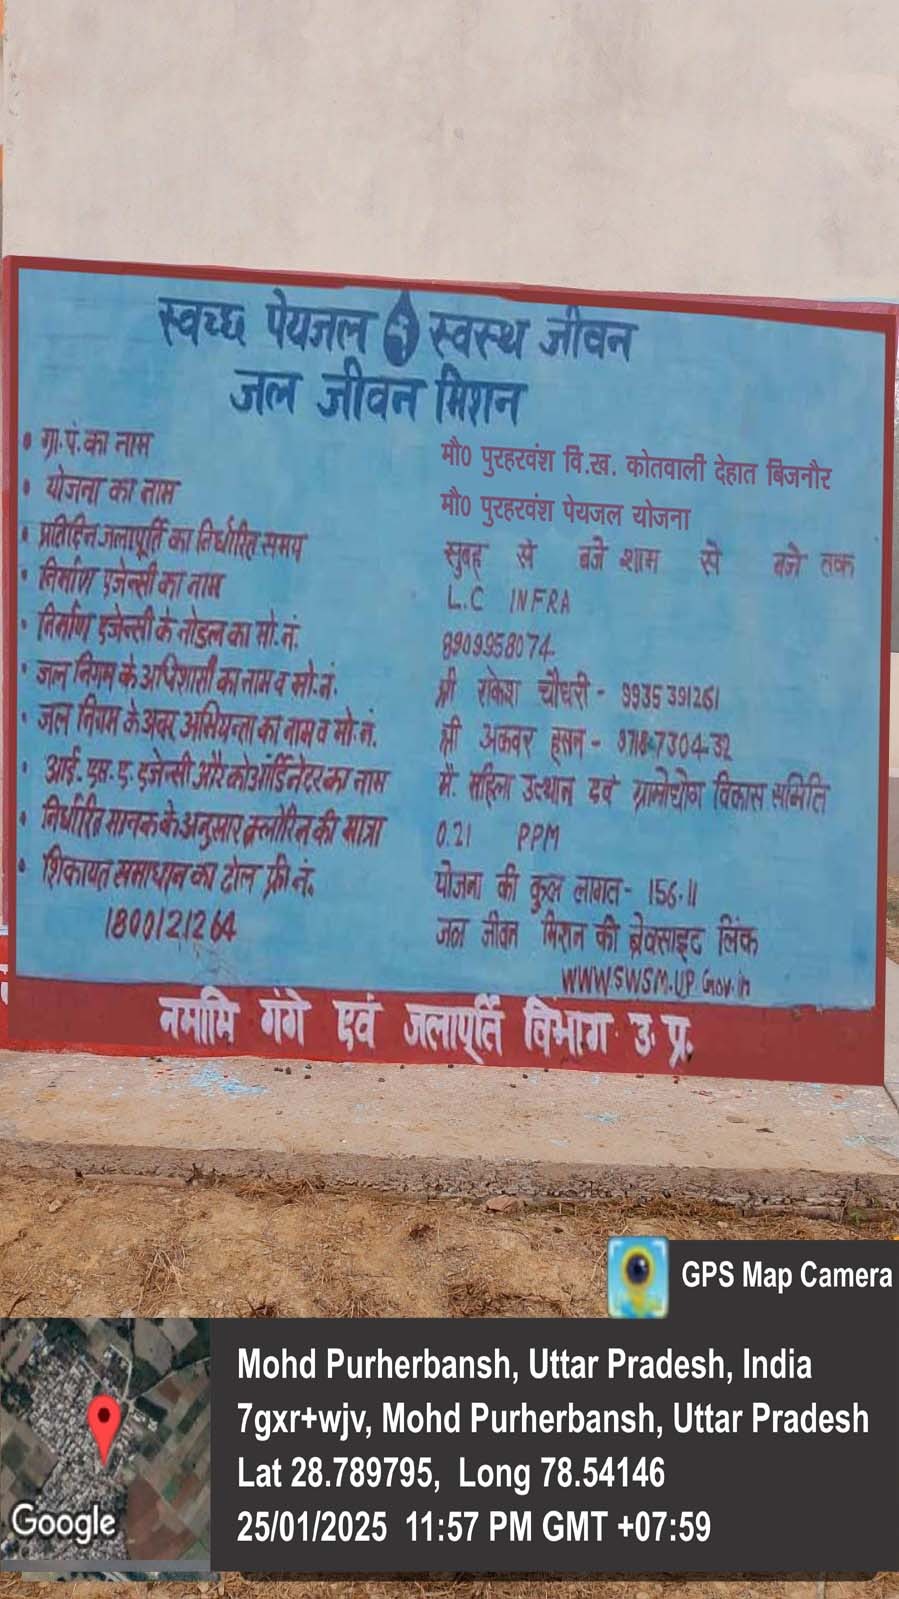 स्वच्छ पेयजल स्वस्थ जीवन
जल जीवन मिशन
• ग्रा.पं.का नाम मौ0 पुरहरवंश वि.ख. कोतवाली देहात बिजनौर
• योजना का नाम मौ0 पुरहरवंश पेयजल योजना
• प्रतिदिन जलापूर्ति का निर्धारित समय सुबह से बजे शाम से बजे तक
• निर्माण एजेन्सी का नाम L.C INFRA
• निर्माण एजेन्सी के नोडल का मो.नं. 8909958074
• जल निगम के अधिशासी का नाम व मो.नं. श्री राकेश चौधरी - 9935391261
• जल निगम के अवर अभियन्ता का नाम व मो.नं. श्री अकवर हसन -
• आई.एस.ए. एजेन्सी और कोऑर्डिनेटर का नाम मै. महिला उत्थान एवं ग्रामोद्योग विकास समिति
• निर्धारित मानक के अनुसार क्लोरिन की मात्रा 0.21 PPM
• शिकायत समाधान का टोल फ्री नं. योजना की कुल लागत - 156.11
1800121264 जल जीवन मिशन की वेबसाइट लिंक
WWW.SWSM.UP.Gov.in
नमामि गंगे एवं जलापूर्ति विभाग उ.प्र.
GPS Map Camera
Mohd Purherbansh, Uttar Pradesh, India
7gxr+wjv, Mohd Purherbansh, Uttar Pradesh
Lat 28.789795, Long 78.54146
25/01/2025 11:57 PM GMT +07:59
Google